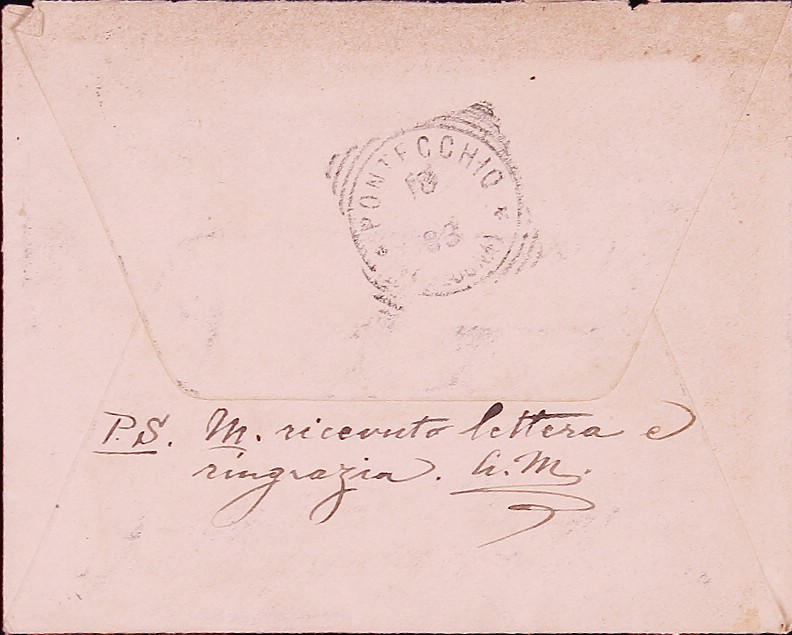 PONTECCHIO
P.S. M. ricevuto lettera e
ringrazia. G. M.